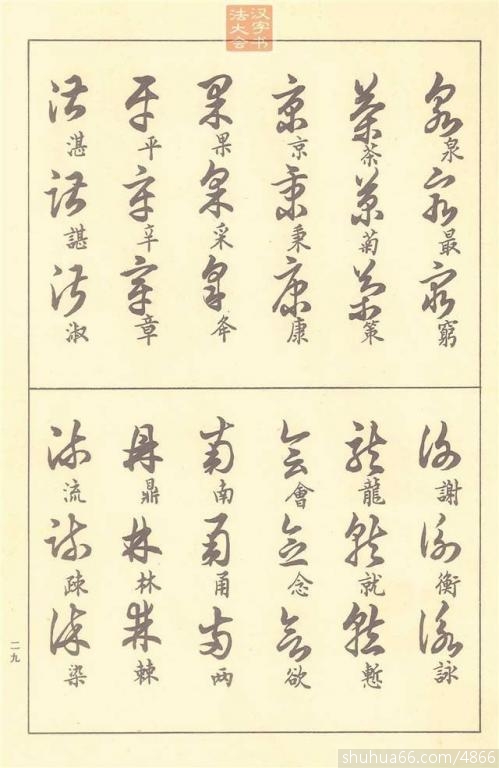 汉字书
法大会
泉 最 窮
茶 菊 策
京 秉 康
果 采 夅
平 辛 章
湛 諶 淑
謝 衡 詠
龍 就 慙
會 念 欲
南 甬 两
鼎 林 棘
流 疎 染
二九
shuhua66.com/4866